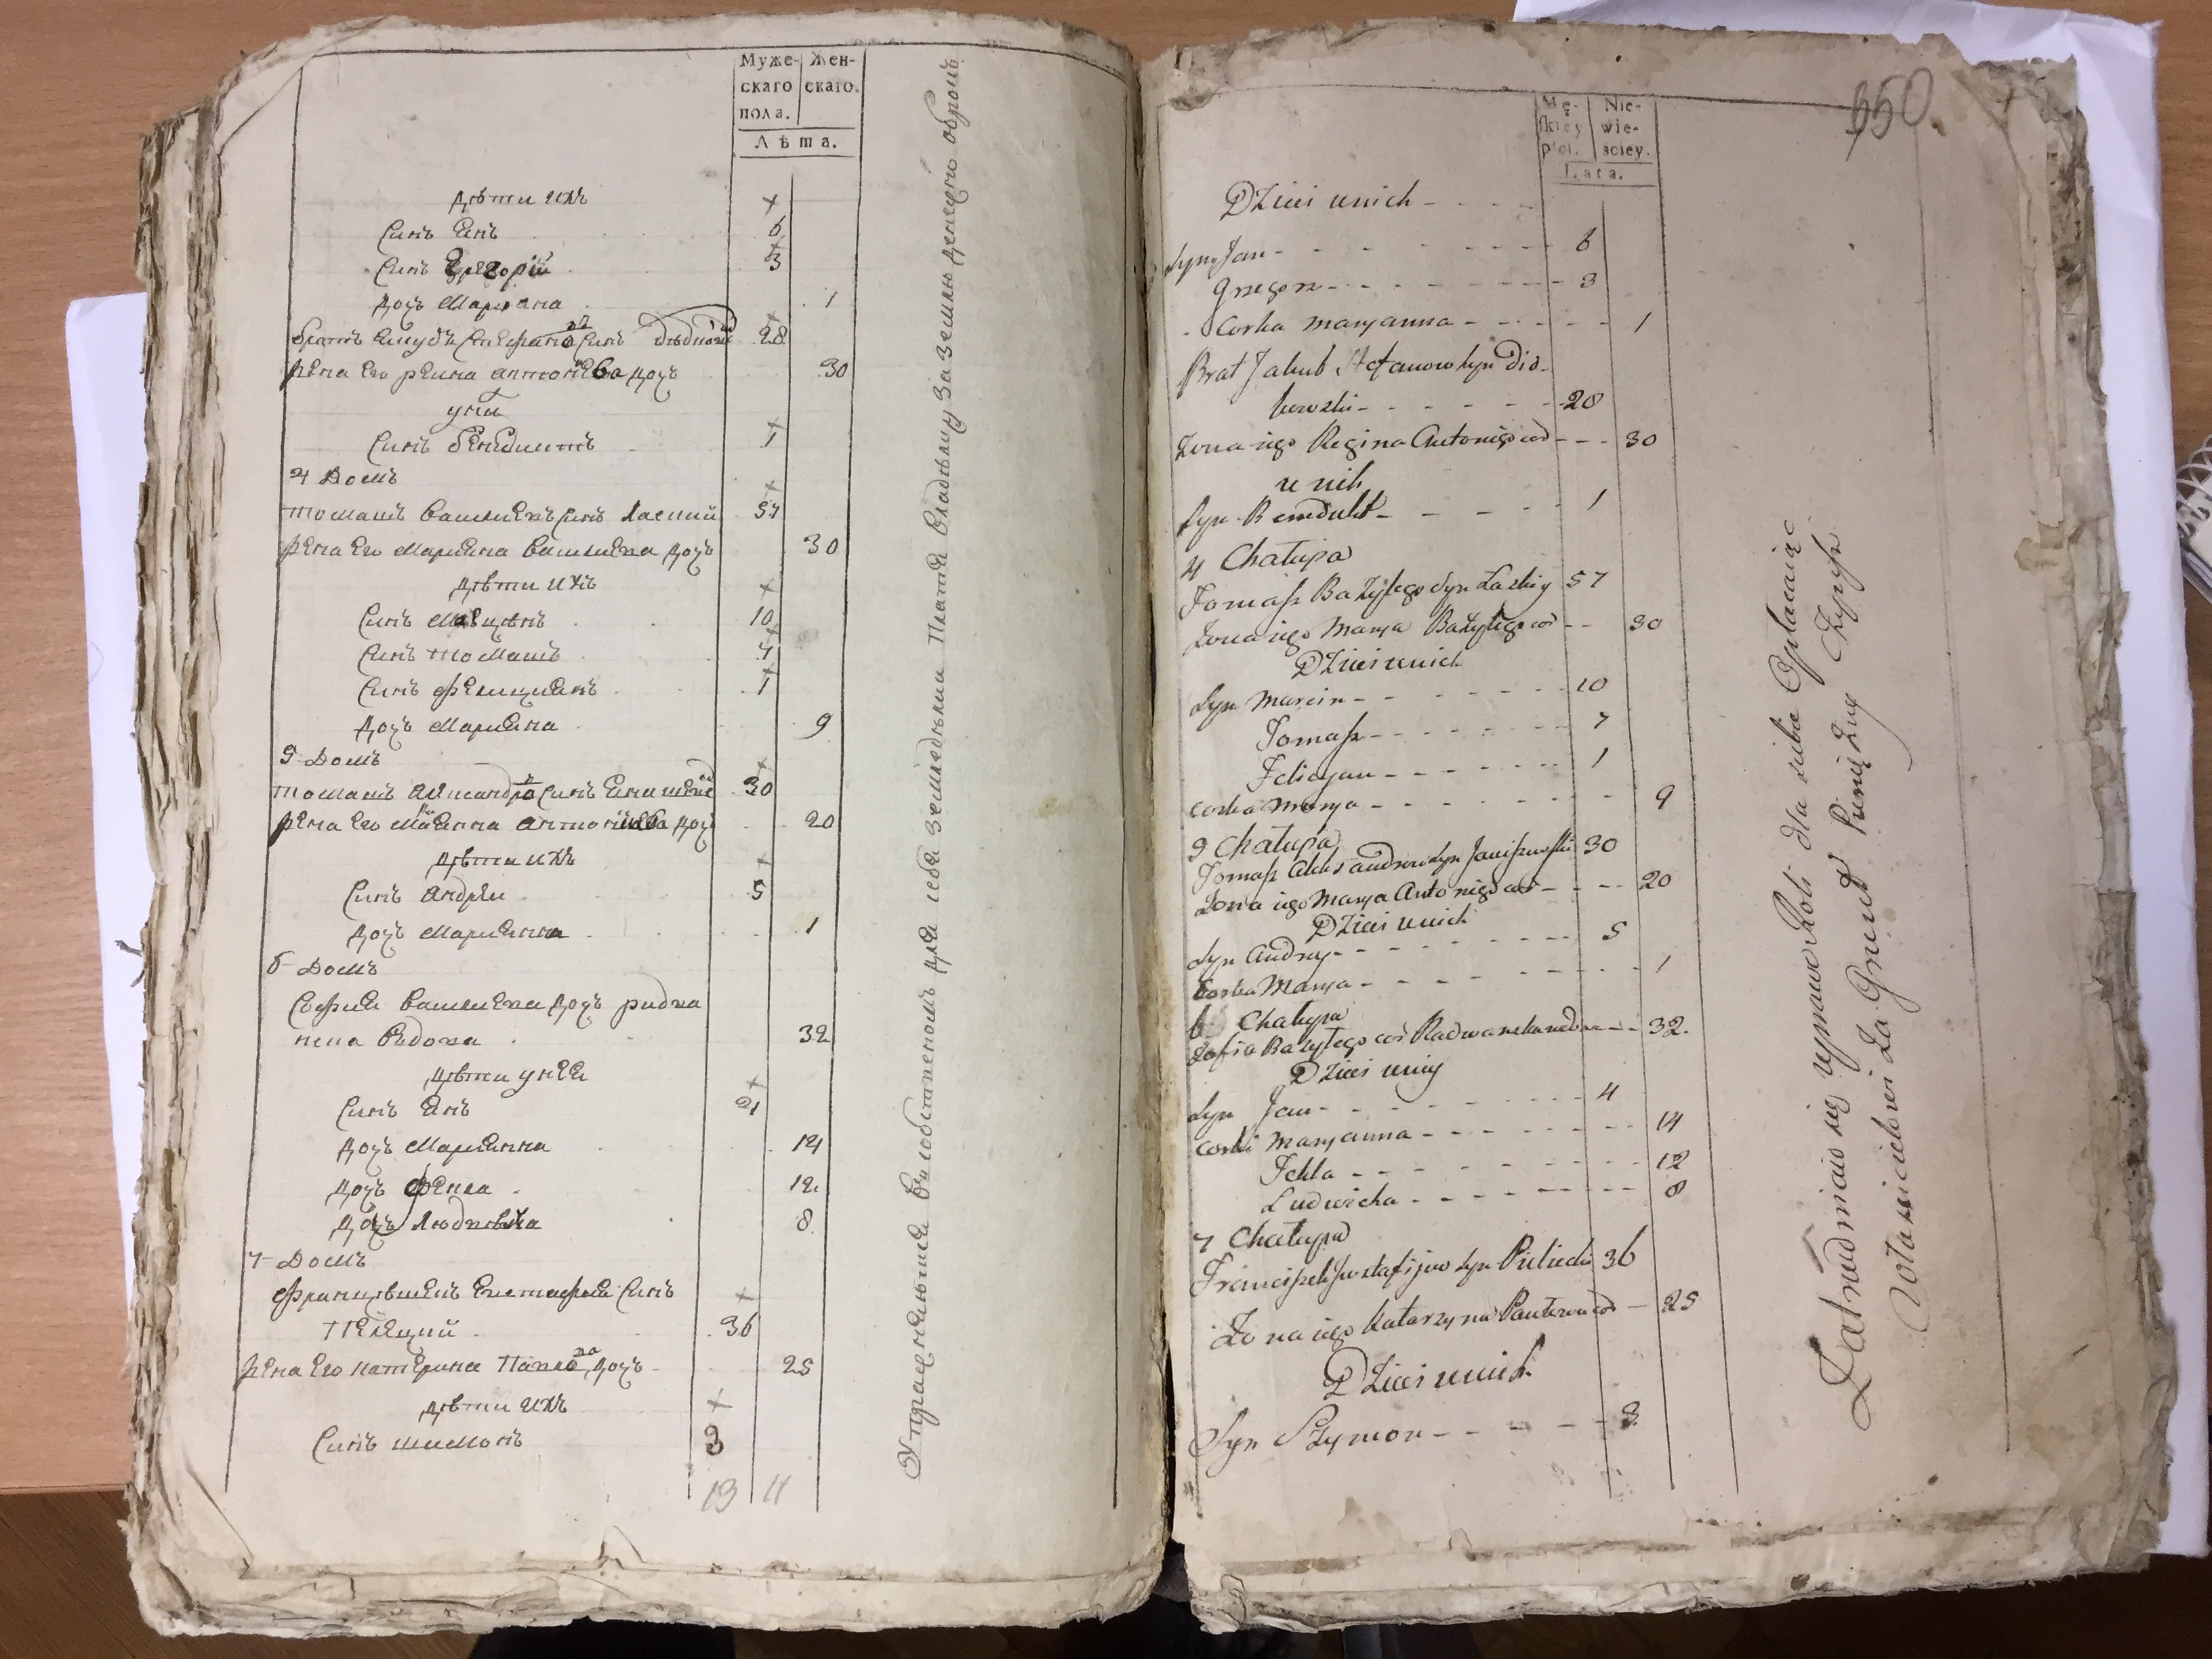 Муже-
скаго
пола.
Жен-
скаго.
Лѣта.
дѣти ихъ
Синъ Янъ 6
Синъ Грегорій 3
Доч Марыана 1
братъ Якубъ Стефановъ Синъ 28
жена Его регина антонѣва доч 30
у них
Синъ бенедиктъ 1
4 Домъ
томашъ базилѣвъ Синъ ласкій 57
жена Его Мариана базилѣва доч 30
дѣти ихъ
Синъ Марцинъ 10
Синъ томашъ 7
Синъ фелициянъ 1
Доч Мариана 9
5 Домъ
томашъ Синъ 30
жена Его антонѣва доч 20
дѣти ихъ
Синъ андрей 5
Доч Марианна 1
6 Домъ
София базилѣва доч радва
нска вдова 32
Дѣти у нея
Синъ янъ 4
Доч Марианна 14
Доч фекла 12
Доч людвика 8
7 Домъ
францишекъ евстафия Синъ
36
жена Его катерина Павлова доч 25
дѣти ихъ
Синъ шимонъ 3
13 11
Упражняются въ хлебопашеномъ для себя земледѣлии Платя владѣльцу за землю денежный оброкъ
550
Mę-
skiey
płci.
Nie-
wie-
sciey.
Lata.
Dzieci u nich - - - -
Syn Jan - - - - - - - 6
Grzegorz - - - - - - - 3
Corka Maryanna - - - - - 1
Brat Jakub Stefanow syn Did-
kowski - - - - - - 28
Zona iego Regina Antoniego cor - - - 30
u nich
Syn Benedukt - - - - - 1
4 Chałupa
Tomasz Bazylego Syn Laskiy 57
Zona iego Marya Bazylego cor - - 30
Dzieci u nich
Syn Marcin - - - - - - 10
Tomasz - - - - - - 7
Felicyan - - - - - - 1
Corka Marya - - - - - - - 9
5 Chałupa
Tomasz Aleksandrow Syn Janiszewski 30
Zona iego Marya Antoniego cor - - - - 20
Dzieci u nich
Syn Andrzy - - - - - - - 5
Corka Marya - - - - - - - 1
6 Chałupa
Zofia Bazylego cor Radwanska wdowa - - - 32.
Dzieci u niey
Syn Jan - - - - - - - 4
Corki Maryanna - - - - - - - 14
Tekla - - - - - - - - 12
Ludwicka - - - - - - - 8
7 Chałupa
Franciszek Jewstafijow syn Pielecki 36
Zona iego Katarzyna Pawłowa cor - 25
Dzieci u nich
Syn Szymon - - - - - 3
Zatrudniaią się uprawą Roli dla siebie Opłacaiąc
Właścicielowi za Grunt Pieniężny Czynsz